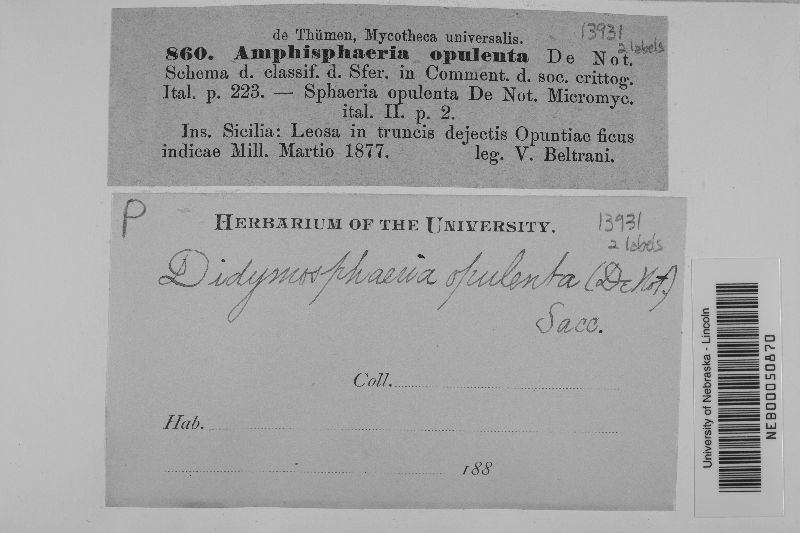 13931
2 labels
de Thümen, Mycotheca universalis.
860. Amphisphaeria opulenta De Not.
Schema d. classif. d. Sfer. in Comment. d. soc. crittog.
Ital. p. 223. — Sphaeria opulenta De Not. Micromyc.
ital. II. p. 2.
Ins. Sicilia: Leosa in truncis dejectis Opuntiae ficus
indicae Mill. Martio 1877. leg. V. Beltrani.
P
HERBARIUM OF THE UNIVERSITY.
13931
2 labels
Didymosphaeria opulenta (De Not.)
Sacc.
Coll.
Hab.
188
University of Nebraska - Lincoln
NEB00050870